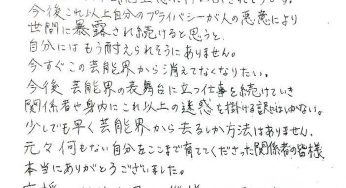 今後これ以上自分のプライバシーが人の悪意により
世間に暴露され続けると思うと、
自分にはもう耐えられそうにありません。
今すぐこの芸能界から消えてなくなりたい。
今後芸能界の表舞台に立つ仕事を続けていき
関係者や身内にこれ以上の迷惑を掛ける訳にはいかない。
少しでも早く芸能界から去るしか方法はありません。
元々何もない自分をここまで育ててくださった関係者の皆様
本当にありがとうございました。